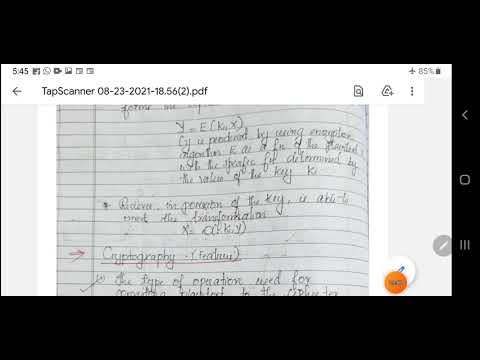 5:45
85%
TapScanner 08-23-2021-18.56(2).pdf
forms the
Y = E(K, X)
(Y is produced by using encryption
algorithm E as a fn of the plaintext
with the specific fn determined by
the value of the key K
* Reciever, in possession of the key, is able to
invert the transformation
X = D(K, Y)
→ Cryptography (Feature)
The type of operation used for
plaintext to the cipher